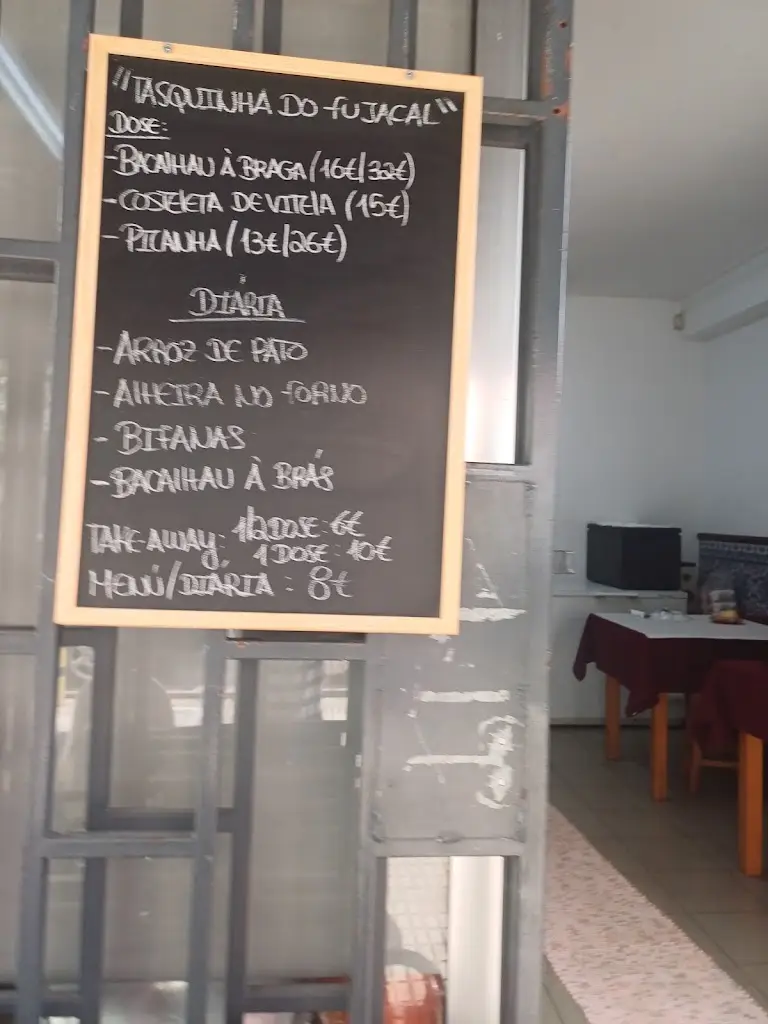 "TASQUINHA DO FUJACAL"
DOSE:
- BACALHAU À BRAGA (16€/32€)
- COSTELETA DE VITELA (15€)
- PICANHA (13€/26€)
DIÁRIA
- ARROZ DE PATO
- ALHEIRA NO FORNO
- BIFANAS
- BACALHAU À BRÁS
TAKE AWAY: 1/2 DOSE: 6€
1 DOSE: 10€
MENÚ/DIÁRIA: 8€